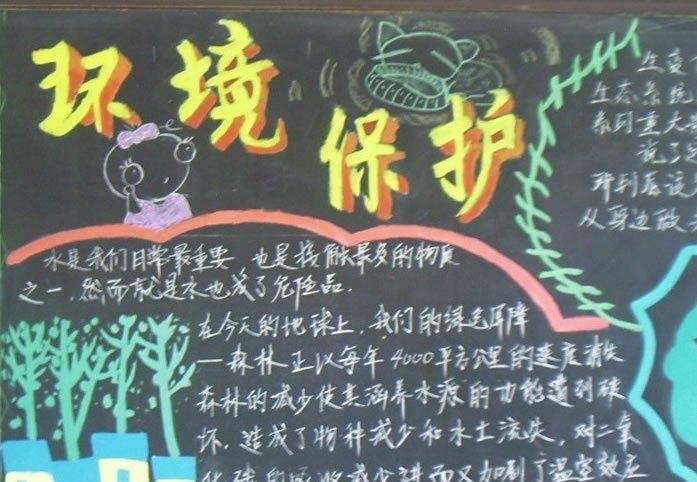 环境
保护
水是我们日常最重要 也是接触最多的物质
之一.然而就是水也成了危险品.
在今天的地球上,我们的绿色屏障
—森林正以每年4000平方公里的速度消失
森林的减少使其涵养水源的功能遭到破
坏,造成了物种减少和水土流失,对二氧
化碳的吸收减少进而又加剧了温室效应
生态系统
系列重大
从身边做